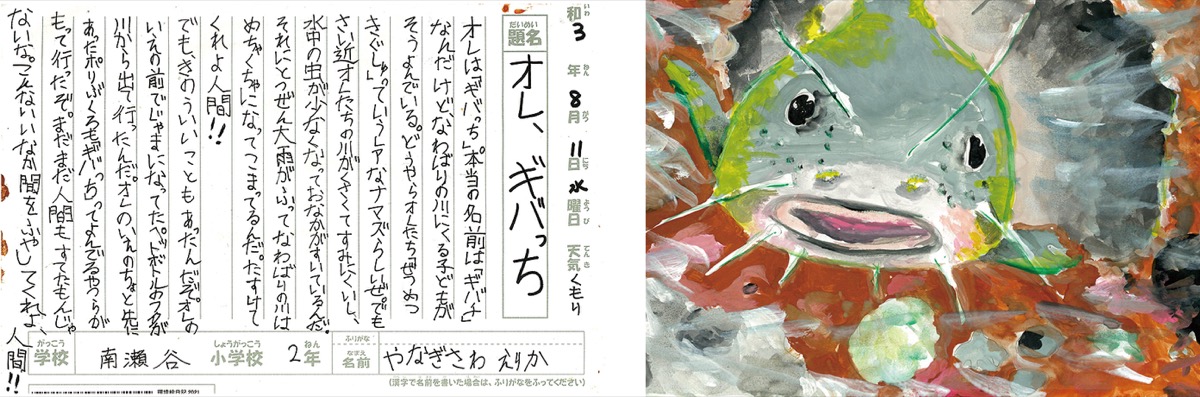 和3年8月11日水曜日 天気くもり
いわ ねん がつ にち ようび てんき
だいめい
題名 オレ、ギバっち
オレは「ギバっち」。本当の名前は「ギバチ」
なんだけど、なわばりの川にくる子どもが
そうよんでいる。どうやらオレたちぜつめつ
きぐしゅっていうレアなナマズらしいぜ。でも
さい近オレたちの川がくさくてすみにくいし、
水中の虫が少なくなっておなかがすいているんだ。
それにとつぜん大雨がふってなわばりの川は
めちゃくちゃになってこまってるんだ。たすけて
くれよ人間!!
でもきのういいこともあったんだぜ。オレの
いえの前でじゃまになってたペットボトルのフタが
川から出て行ったんだ。オレのいえのちょと先に
あったポリぶくろもギバっちってよんでるやつらが
もって行ったぞ。まだまだ人間もすてたもんじゃ
ないな。こんないいなか間をふやしてくれよ、
人間!!
がっこう しょうがっこう ねん ふりがな なまえ
学校 南瀬谷 小学校 2年 名前 やなぎさわ えりか
(漢字で名前を書いた場合は、ふりがなをふってください)